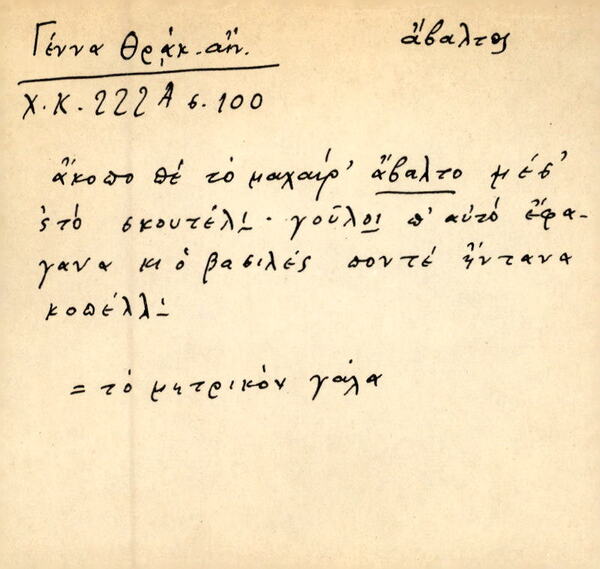 Γέννα Θρᾴκ. ἀἤ.
ἄβαλτος
Χ.Κ. 222Α σ. 100
ἄκοπο πὲ τὸ μαχαίρ' ἄβαλτο μέσ'
ςτὸ σκουτέλι̲ · γοῦλοι̲ π' αὐτὸ ἔφα-
γανα κι ὁ βασιλές ποντέ ἤντανα
κοπέλλι̲
= τὸ μητρικὸν γάλα